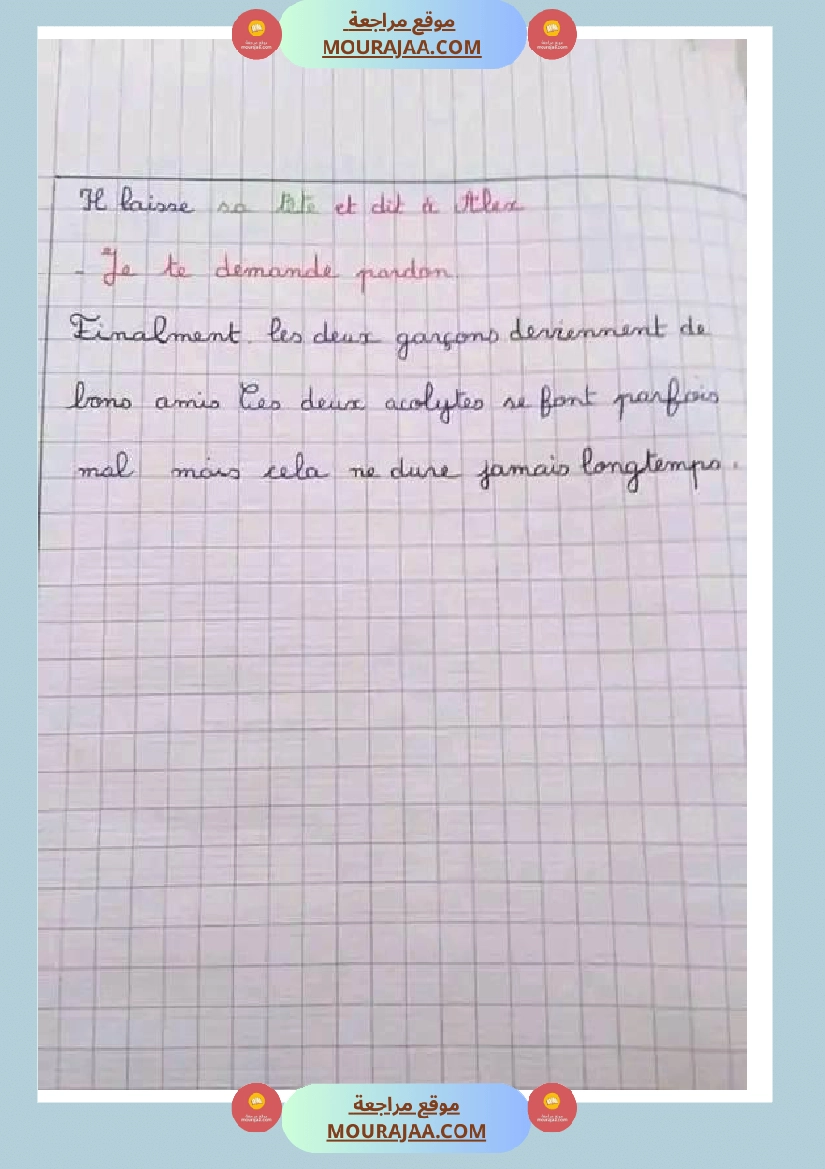 موقع مراجعة
MOURAJAA.COM
Il baisse sa tête et dit à Alex
- Je te demande pardon
Finalment les deux garçons deviennent de
bons amis Ces deux acolytes se font parfois
mal mais cela ne dure jamais longtemps.
موقع مراجعة
MOURAJAA.COM